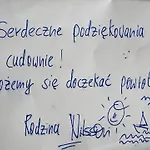 Serdeczne podziękowania
cudownie!
możemy się doczekać powrotu
Rodzina Nilsson